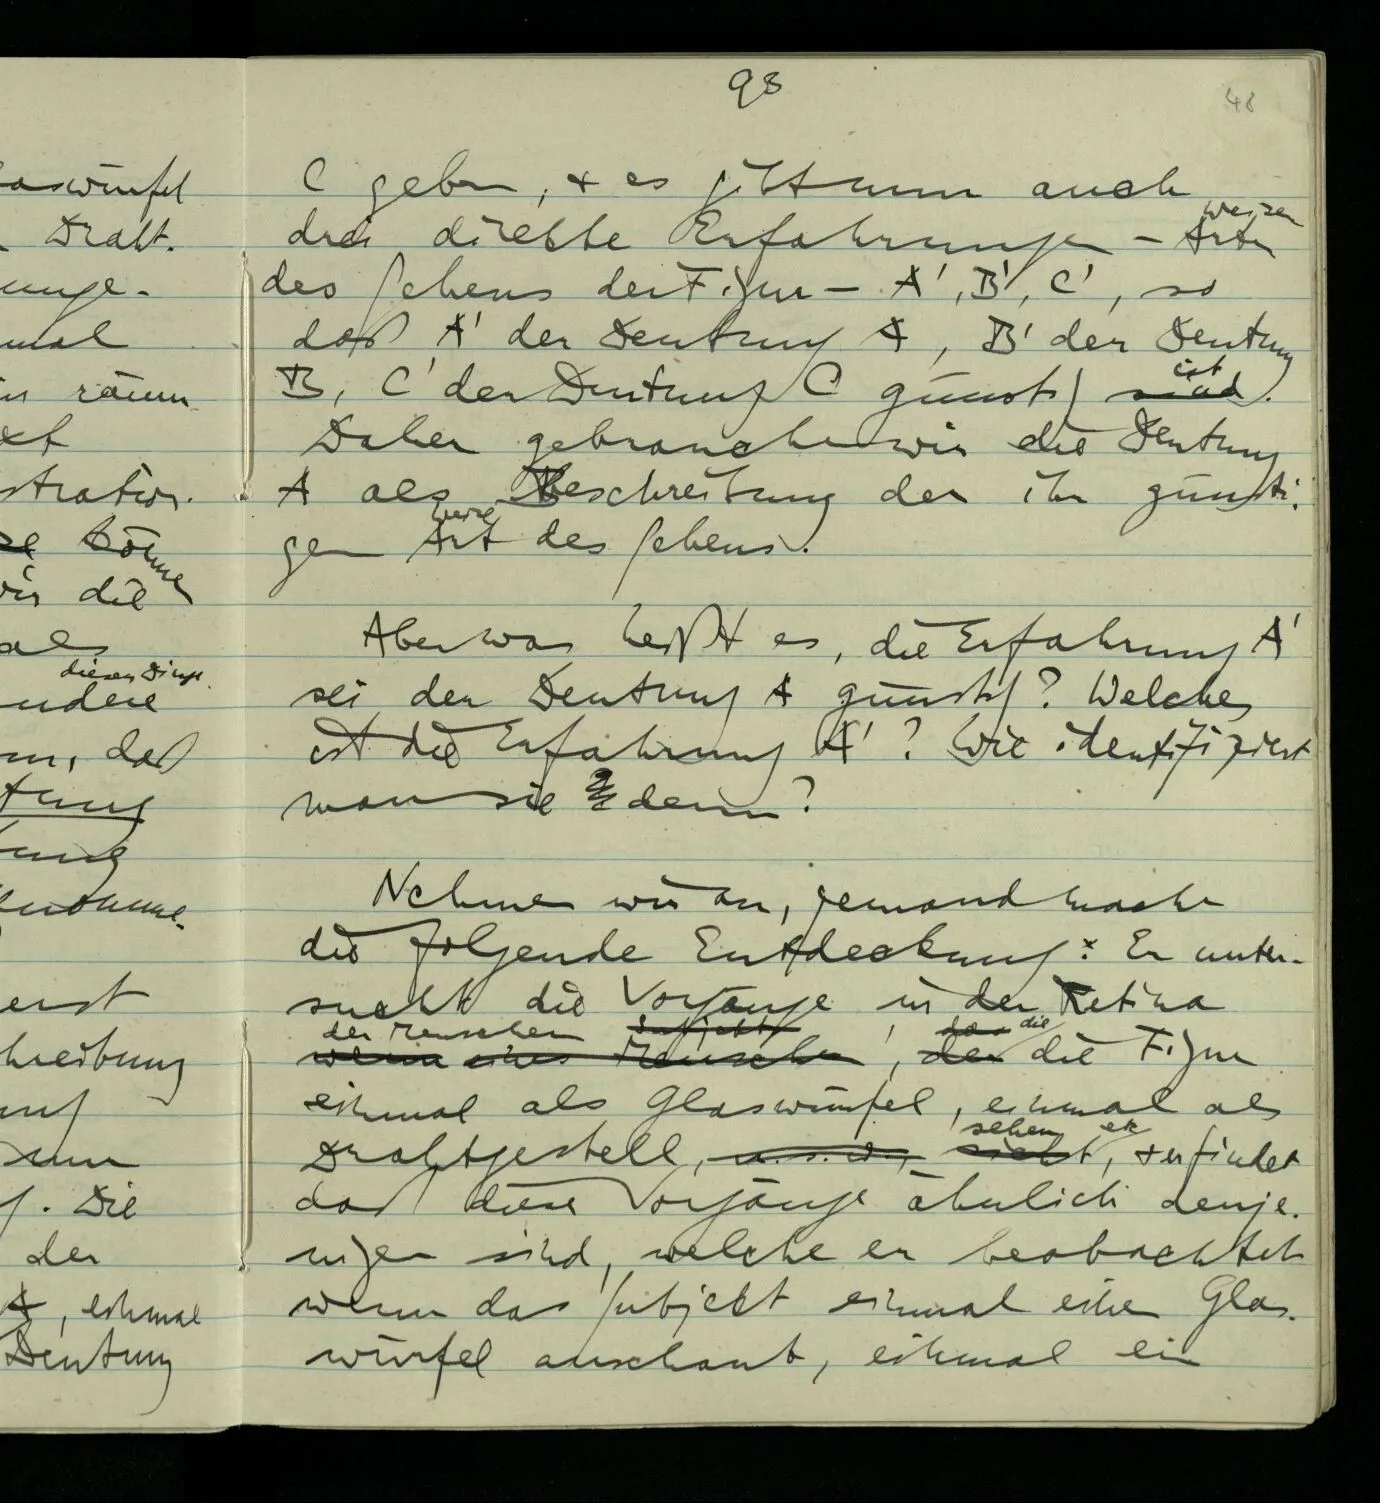 98
48
aswürfel
Draht.
unge-
mal
räum
stration.
können
wir die
als
dieses Dings
ndere
, daß
tung
ung
genomme-
erst
hreibung
auf
Die
der
A, einmal
Deutung
C geben, + es gibt nun auch
weisen
drei direkte Erfahrungen – Arten
des Sehens der Figur – A', B', C', so
daß A' der Deutung A, B' der Deutung
ist
B, C' der Deutung C günstig sind.
Daher gebrauchen wir die Deutung
A als Beschreibung der ihr günsti-
weise
gen Art des Sehens.
Aber was heißt es, die Erfahrung A'
sei der Deutung A günstig? Welches
ist die Erfahrung A'? Wie identifiziert
man sie denn?
Nehmen wir an, jemand mache
die folgende Entdeckung: Er unter-
sucht die Vorgänge in der Retina
der Menschen Subjekts die
wenn eines Menschen, der die Figur
einmal als Glaswürfel, einmal als
sehen er
Drahtgestell, u.s.w., sieht, + er findet
daß diese Vorgänge ähnlich denje-
nigen sind, welche er beobachtet
wenn das Subjekt einmal einen Glas-
würfel anschaut, einmal ein